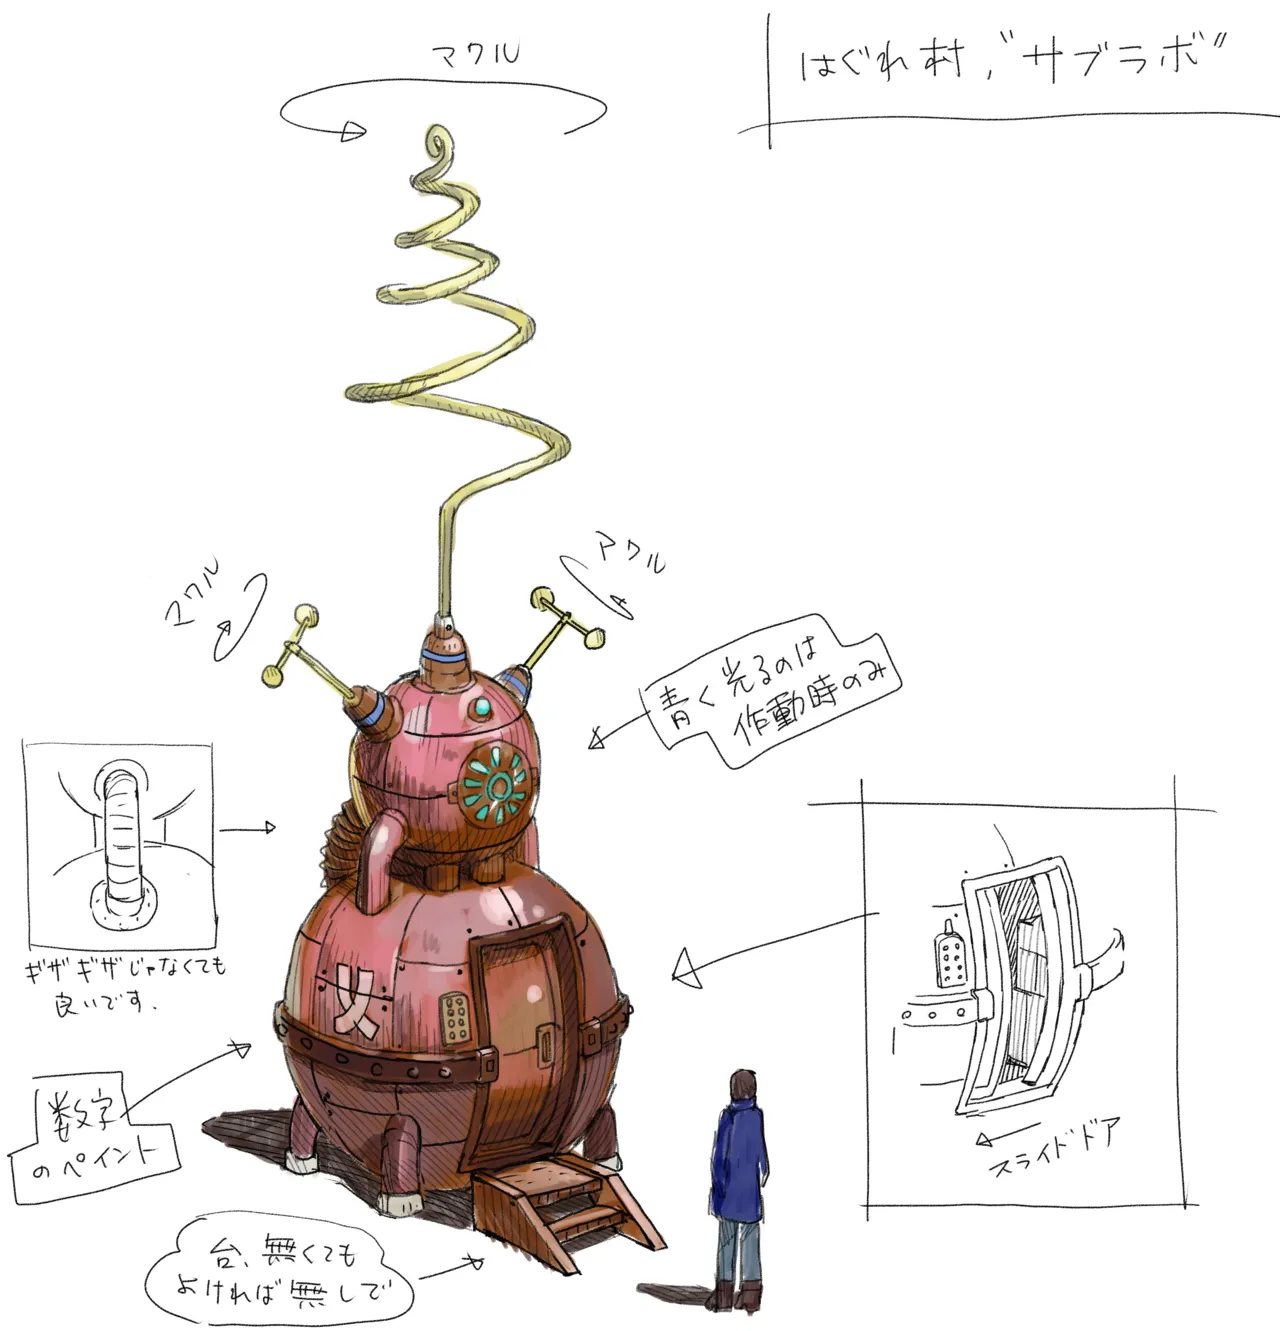 はぐれ村、"サブラボ"
マワル
マワル
マワル
青く光るのは
作動時のみ
ギザギザじゃなくても
良いです.
数字
のペイント
台、無くても
よければ無しで
スライドドア